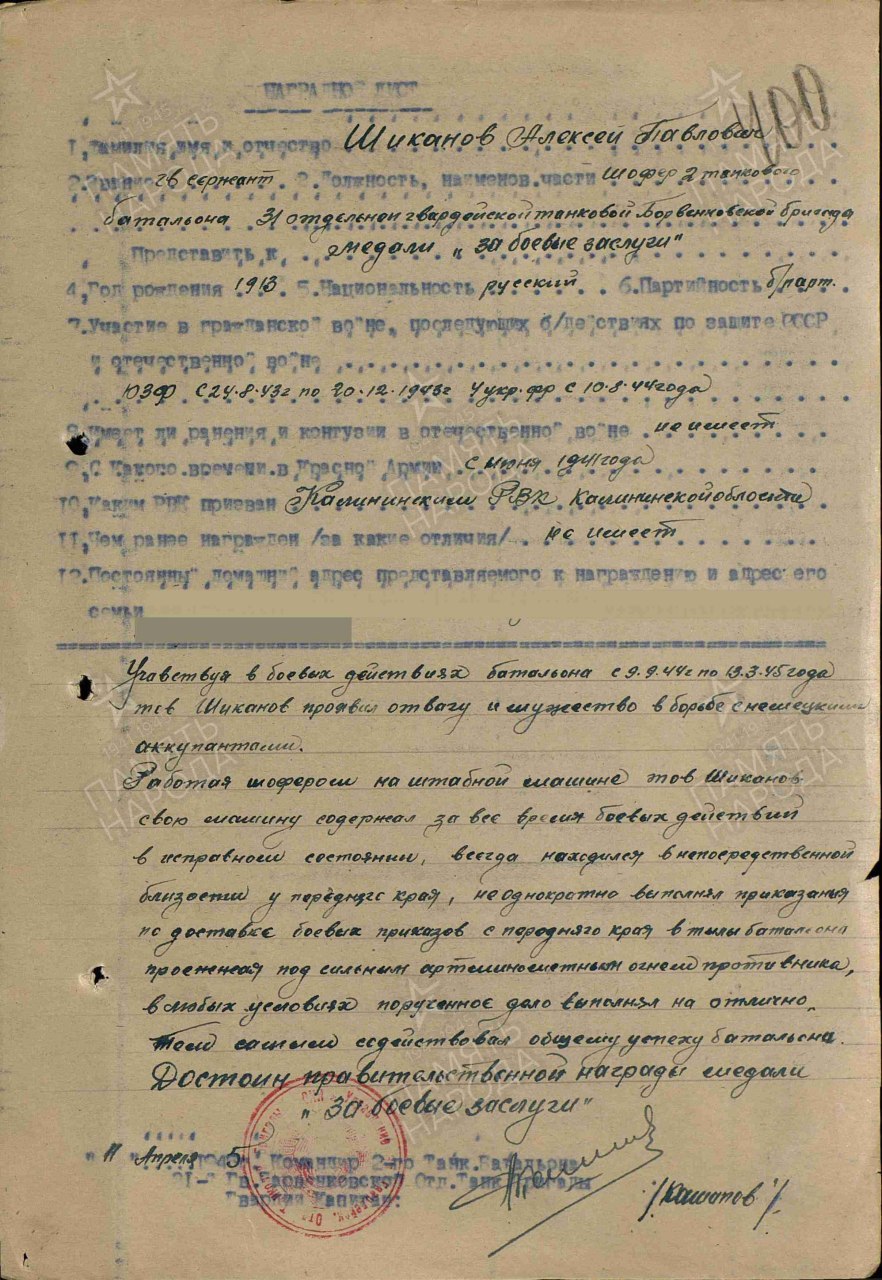 НАГРАДНОЙ ЛИСТ
400
1. Фамилия, имя и отчество Шиканов Алексей Павлович
2. Звание гв сержант 3. Должность, наименов. части шофер 2 танкового
батальона 31 отдельной гвардейской танковой Барвенковской бригады
Представить к медали „за боевые заслуги"
4. Год рождения 1913 5. Национальность русский 6. Партийность б/парт.
7. Участие в гражданской войне, последующих б/действиях по защите СССР
и отечественной войне
ЮЗФ с 24.8.43г по 20.12.1943г 4 укр. фр с 10.8.44 года
8. Имеет ли ранения и контузии в отечественной войне не имеет
9. С какого времени в Красной Армии с июня 1941 года
10. Каким РВК призван Калининским РВК Калининской области
11. Чем ранее награжден /за какие отличия/ не имеет
12. Постоянный домашний адрес представляемого к награждению и адрес его
семьи
Учавствуя в боевых действиях батальона с 9.9.44г по 13.3.45 года
тов Шиканов проявил отвагу и мужество в борьбе с немецкими
аккупантами.
Работая шофером на штабной машине тов Шиканов
свою машину содержал за все время боевых действий
в исправном состоянии, всегда находился в непосредственной
близости у переднего края, неоднократно выполнял приказанья
по доставке боевых приказов с переднего края в тылы батальона
проезжая под сильным артеминометным огнем противника,
в любых условиях порученное дело выполнял на отлично.
Тем самым содействовал общему успеху батальона.
Достоин правительственной награды медали
„За боевые заслуги"
11 Апреля 1945 Командир 2-го Танк. Батальона
31-й Гв. Барвенковской Отд. Танк. Бригады
Гвардии Капитан: /Кашапов/
ПАМЯТЬ НАРОДА